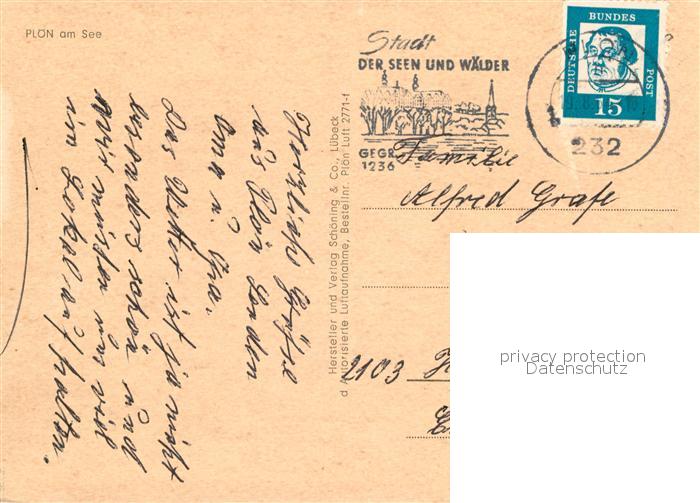 PLÖN am See
Herzliche Grüße
aus Plön senden
Oma u. Opa.
Das Wetter ist ja nicht
besonders schön und
wir müssen uns viel
im Lokal aufhalten.
Hersteller und Verlag Schöning & Co., Lübeck
Autorisierte Luftaufnahme, Bestellnr. Plön Luft 2771-f
Stadt
DER SEEN UND WÄLDER
GEGR.
1236
232
DEUTSCHE BUNDESPOST
15
Familie
Alfred Grafe
2103
privacy protection
Datenschutz